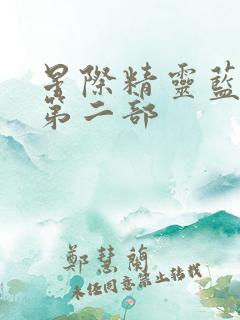 星際精靈藍
第二部
鄭慧蘭
未經同意禁止轉載